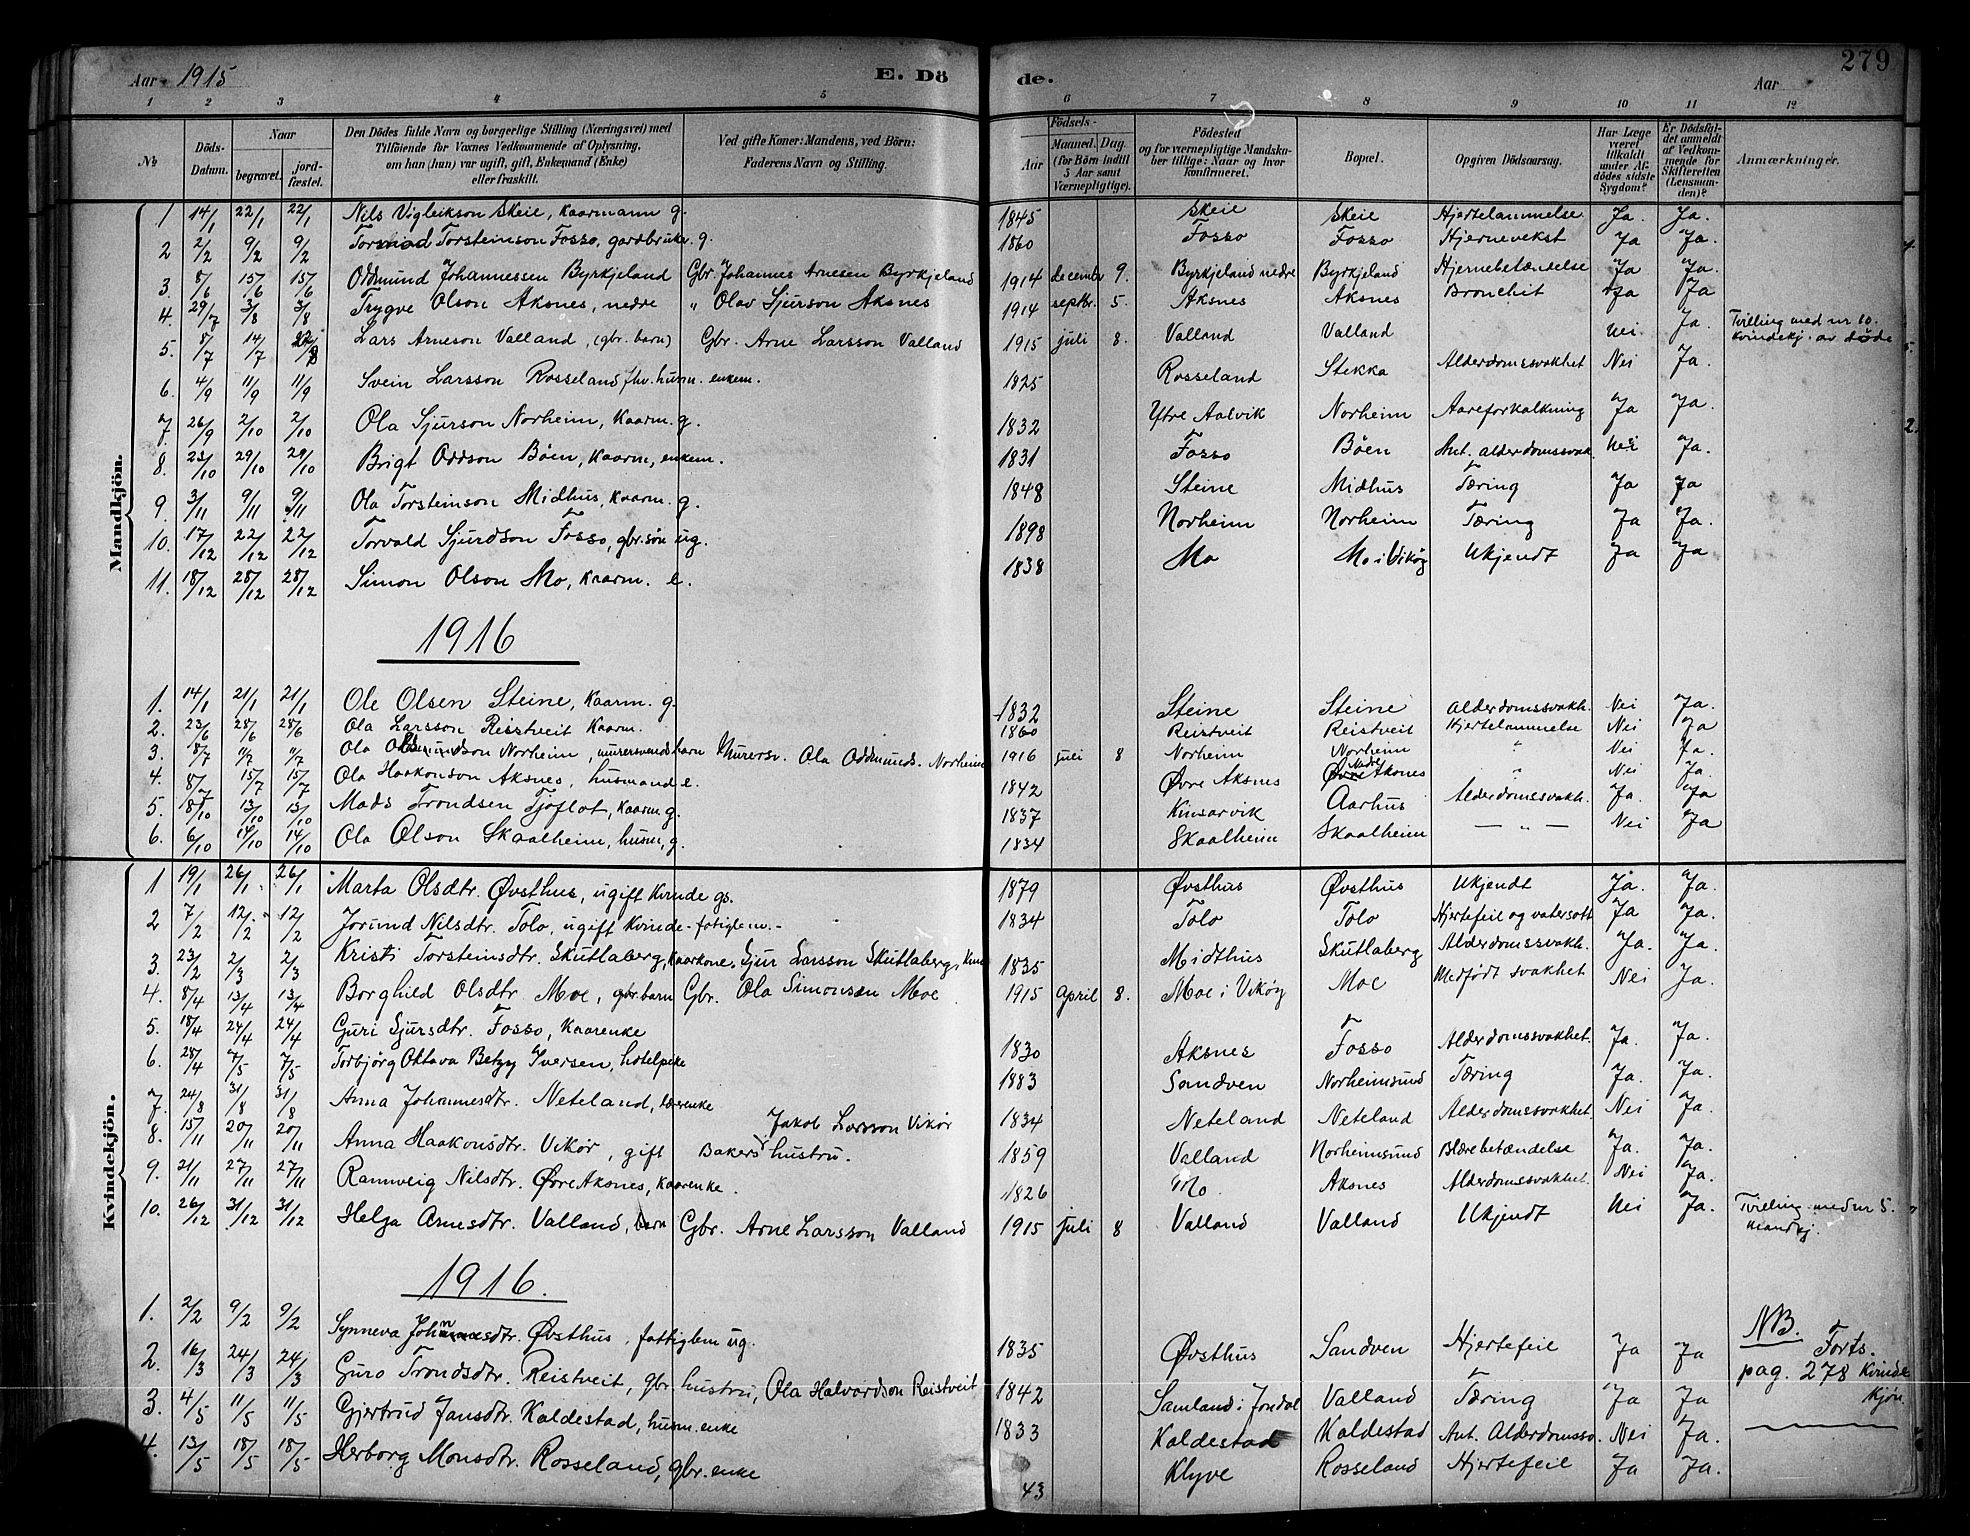 Aar 1915 E. Dö de. Aar 279
1 2 3 4 5 6 7 8 9 10 11 12
№ Döds-Datum. Naar begravet. jordfæstet. Den Dödes fulde Navn og borgerlige Stilling (Næringsvei) med Tilföiende for Voxnes Vedkommende af Oplysning, om han (hun) var ugift, gift, Enkemand (Enke) eller fraskilt. Ved gifte Koner: Mandens, ved Börn: Faderens Navn og Stilling. Födsels- Aar Maaned. Dag. (for Börn indtil 5 Aar samt Værnepligtige). Födested og for værnepligtige Mandskaber tillige: Naar og hvor konfirmeret. Bopæl. Opgiven Dödsaarsag. Har Læge været tilkaldt under Afdödes sidste Sygdom? Er Dödsfaldet anmeldt af Vedkommende for Skifteretten (Lensmanden)? Anmærkninger.
Mandkjön.
1 14/1 22/1 22/1 Nils Vigleikson Skeie, Kaarmann g. 1845 Skeie Skeie Hjertelammelse Ja. Ja.
2 2/2 9/2 9/2 Tormod Torsteinson Fosso, gardbruker g. 1860 Fosso Fosso Hjernevekst Ja Ja.
3. 8/6 15/6 15/6 Oddmund Johannessen Byrkjeland Gbr. Johannes Arnesen Byrkjeland 1914 december 9. Byrkjeland nedre Byrkjeland Hjernebetændelse Ja Ja.
4. 29/7 3/8 3/8 Trygve Olson Aksnes, nedre " Olav Sjurson Aksnes 1914 septbr. 5. Aksnes Aksnes Bronchit Ja Ja
5. 8/7 14/7 Lars Arneson Valland, (gbr. barn) Gbr. Arne Larsson Valland 1915 juli 8. Valland Valland Nei Ja. Tvilling med nr 10. Kvindekj. av døde
6. 4/9 11/9 11/9 Svein Larsson Rosseland fhv. husm. enkem. 1825 Rosseland Stekka Alderdomssvakhet Nei Ja.
7 26/9 2/10 2/10 Ola Sjurson Norheim, Kaarm. g. 1832 Ytre Aalvik Norheim Aareforkalkning Ja Ja.
8. 23/10 29/10 29/10 Brigt Oddson Bøen, Kaarm, enkem. 1831 Fosso Bøen Ant. alderdomssvak. Nei Ja.
9 3/11 9/11 9/11 Ola Torsteinson Midhus, Kaarm. g. 1848 Steine Midhus Tæring Ja Ja
10. 17/12 22/12 22/12 Torvald Sjurdson Fosso, gbr. søn ug. 1898 Norheim Norheim Tæring Ja Ja.
11. 18/12 28/12 28/12 Simon Olson Mo, Kaarm. e. 1838 Mo Mo i Vikøy Ukjendt Ja Ja
1916
1. 14/1 21/1 21/1 Ole Olsen Steine, Kaarm. g. 1832 Steine Steine Alderdomssvakh. Nei Ja.
2. 23/6 28/6 28/6 Ola Larsson Reistveit Kaarm. 1860 Reistveit Reistveit Hjertelammelse Nei Ja
3. 8/7 11/7 11/7 Ola Norheim, murersvends barn Murersv. Ola Oddmunds. Norheim 1916 juli 8 Norheim Norheim " Nei Ja.
4. 8/7 15/7 15/7 Ola Haakonson Aksnes, husmand e. 1842 Øvre Aksnes Nedre Aksnes " Nei Ja.
5. 8/10 13/10 13/10 Mads Trondsen Tjoflot, Kaarm g. 1837 Kinsarvik Aarhus Alderdomssvakh. Ja. Ja
6. 6/10 14/10 14/10 Ola Olson Skaalheim, husm, g. 1834 Skaalheim Skaalheim — " — Nei Ja
Kvindekjön.
1 19/1 26/1 26/1 Marta Olsdtr. Øvsthus, ugift Kvinde gs. 1879 Øvsthus Øvsthus Ukjendt Ja. Ja.
2 7/2 12/2 12/2 Jorund Nilsdtr. Tolo, ugift Kvinde - fatiglem. - 1834 Tolo Tolo Hjertefeil og vatersott Ja Ja.
3. 23/2 2/3 2/3 Kristi Torsteinsdtr. Skutlaberg, Kaarkone. Sjur Larsson Skutlaberg, 1835 Midthus Skutlaberg Alderdomssvakh. Ja. Ja.
4. 8/4 13/4 13/4 Borghild Olsdtr. Moe, gbr. barn Gbr. Ola Simonsen Moe 1915 April 8. Moe i Vikøy Moe Medfødt svakhet Nei Ja.
5. 18/4 24/4 24/4 Guri Sjursdtr. Fosso, Kaarenke 1830 Aksnes Fosso Alderdomssvakhet. Ja. Ja.
6. 28/4 7/5 7/5 Torbjörg Oktava Betzy Iversen, hotelpike 1883 Sandven Norheimsund Tæring Ja. Ja.
7. 24/8 31/8 31/8 Anna Johannesdtr. Neteland, lærenke 1834 Neteland Neteland Alderdomssvakhet Nei Ja.
8. 15/11 20/11 20/11 Anna Haakonsdtr. Vikør, gift Bakers Jakob Larsson Vikør hustru. 1859 Valland Norheimsund Blærebetændelse Ja. Ja.
9. 21/11 27/11 27/11 Rannveig Nilsdtr. Øvre Aksnes, Kaarenke. 1826 Mo. Aksnes Alderdomssvakhet. Nei Ja.
10. 26/12 31/12 31/12 Helga Arnesdtr. Valland, barn Gbr. Arne Larsson Valland 1915 juli 8 Valland Valland Ukjendt Nei Ja. Tvilling med nr 5. Mandkj.
1916.
1. 2/2 9/2 9/2 Synneva Johannesdtr. Øvsthus, fattiglem ug. 1835 Øvsthus Sandven Hjertefeil Ja Ja NB. Forts. pag. 278 Kvinde Kjøn
2. 16/3 24/3 24/3 Guro Trondsdtr. Reistveit, gbr. hustru, Ola Halvordson Reistveit 1842 Samland i Jondal Valland Tæring Ja Ja
3. 4/5 11/5 11/5 Gjertrud Jansdtr. Kaldestad, husm. enke 1833 Kaldestad Kaldestad Ant. Alderdomssv. Nei Ja.
4. 13/5 18/5 18/5 Herborg Monsdtr. Rosseland, gbr. enke 43 Klyve Rosseland Hjertefeil Ja Ja.